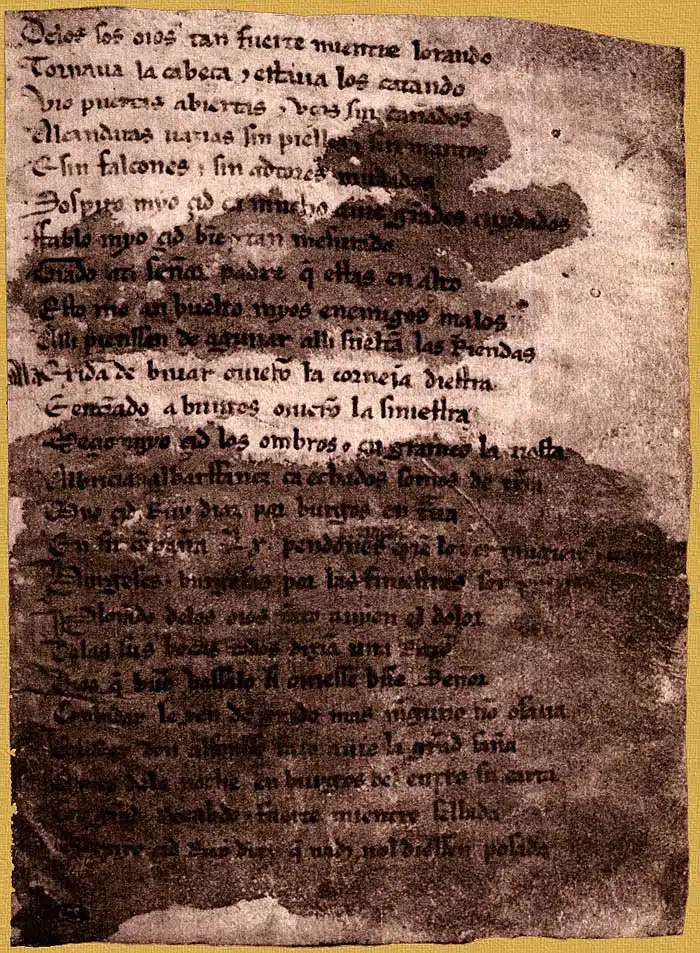 Delos sos oios tan fuerte mientre lorando
Tornaua la cabeça ⁊ estaua los catando
Vio puertas abiertas ⁊ vços sin cañados
Alcandaras uazias sin pielles ⁊ sin mantos
E sin falcones ⁊ sin adtores mudados
Sospiro myo çid ca mucho auie grãdes cuydados
Fablo myo çid biẽ ⁊ tan mesurado
Grado ati señor padre q̃ estas en alto
Esto me an buelto myos enemigos malos
Alli pienssan de aguiiar alli sueltã las Riendas
Ala Exida de biuar ouierõ la corneia diestra
E entrãdo a burgos ouierõ la siniestra
Meçio myo çid los ombros ⁊ en grameo la tiesta
Albricia albarffanez ca echados somos de tierra
Myo çid Ruy diaz por burgos en traua
En su cõpaña .Lx. pendones
Burgeses ⁊ burgesas por las finiestras son
Plorãdo delos oios tãto auyen el dolor
Delas sus bocas todos diziã una Razo
Dios q̃ buẽ vassalo si ouiesse buẽ Señor
Conbidar le yen de grado mas ninguno nõ osaua
don alfonsso tãto auie la grãd saña
dela noche en burgos del entro su carta
grand Recabdo ⁊ fuerte mientre sellada
çid Ruy diaz q̃ nadi nol diessen posada